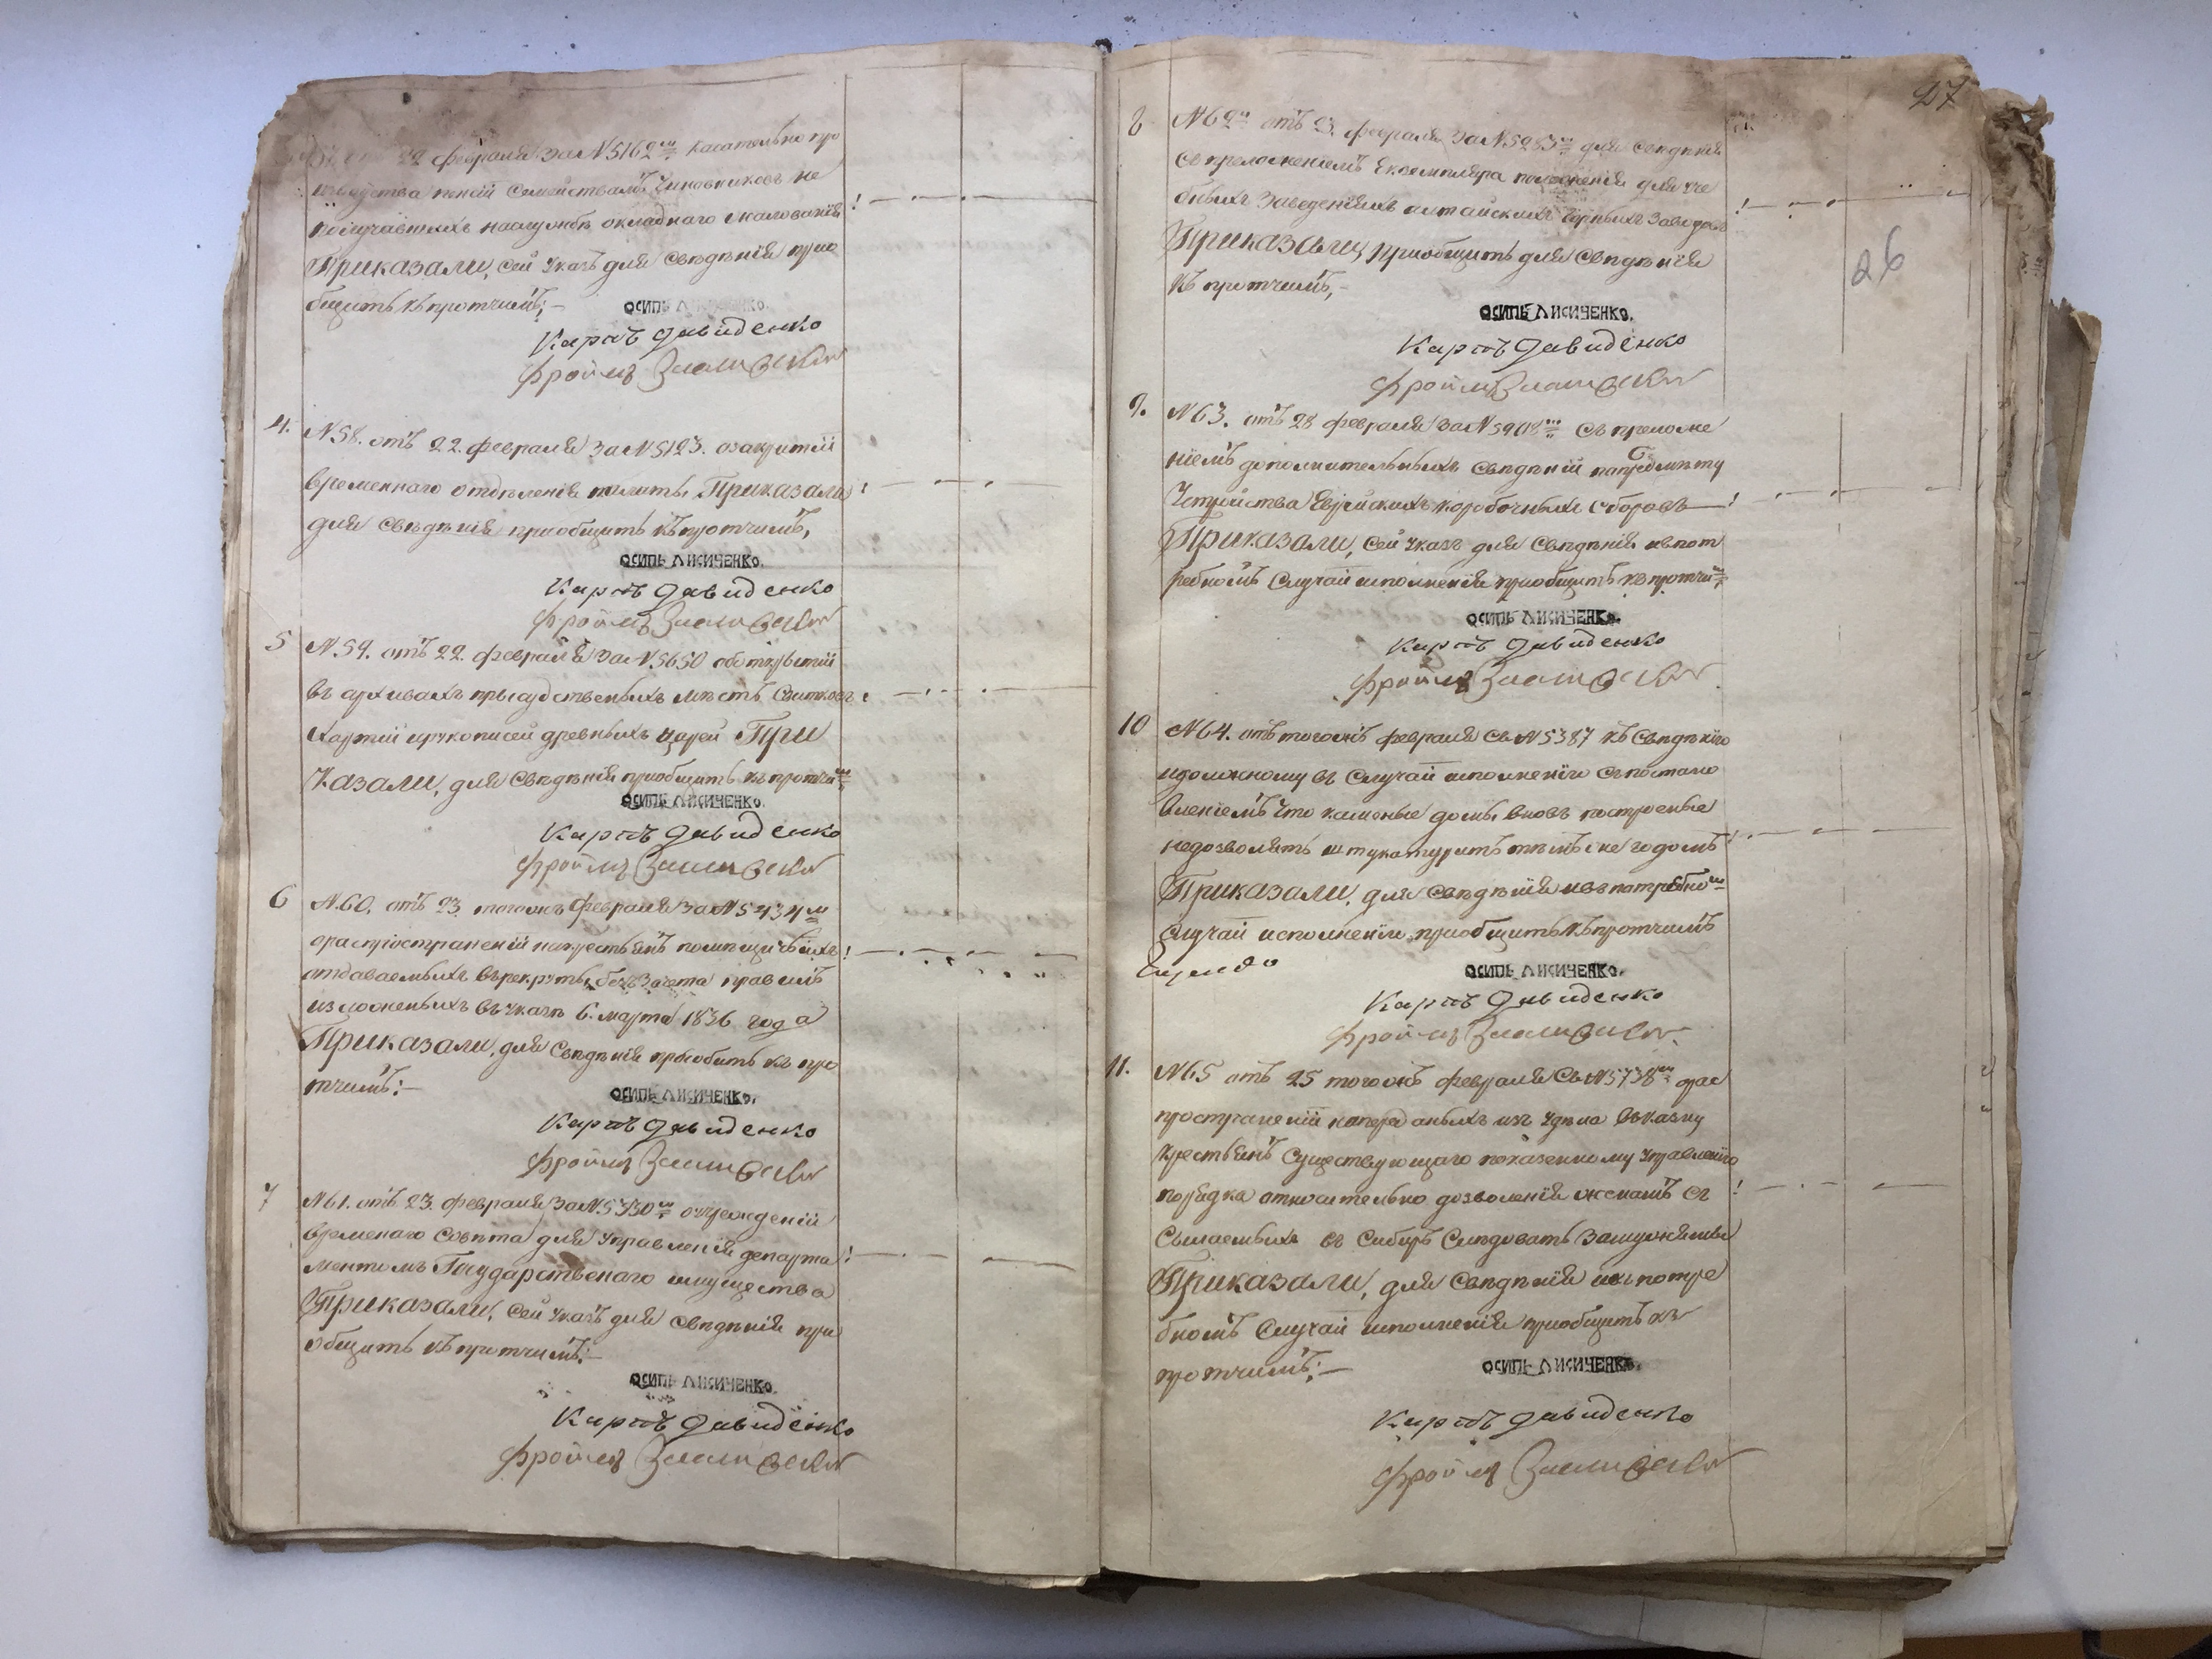 22 февраля за №5162м касательно про
изводства пенсій Семействамъ Чиновниковъ не
получавшихъ наслужбѣ окладнаго жалованія
Приказали, сей указъ для свѣдѣнія прио
бщить къ протчимъ;-
ОСИПЬ ЛИСИЧЕНКО.
Карпъ Давиденко
Фроимъ
4. №58. отъ 22. февраля за №5123. озакрытіи
временнаго отдѣленія палаты Приказали
для свѣдѣнія приобщить къ протчимъ,
ОСИПЬ ЛИСИЧЕНКО.
Карпъ Давиденко
Фроимъ
5 №59. отъ 22. февраля за №5650 оботкрытіи
въ архивахъ присудственыхъ мѣстъ Свитковъ
Хартій ирукописей древныхъ царей При
казали, для свѣдѣнія приобщить къ протчим
ОСИПЬ ЛИСИЧЕНКО.
Карпъ Давиденко
Фроимъ
6 №60. отъ 23. тогожъ февраля за №5434м
ораспространеніи накрестьянъ помѣщичьихъ
отдаваемыхъ върекруты безъ зачета правилъ
изложеныхъ въ указѣ 6. марта 1836 года
Приказали, для свѣдѣнія приобщить къ про
тчимъ:-
ОСИПЬ ЛИСИЧЕНКО.
Карпъ Давиденко
Фроимъ
7 №61. отъ 23. февраля за №5330м оучрежденіи
временаго Совѣта для управленія департа
ментомъ Государственаго имущества
Приказали, сей указъ для свѣдѣнія при
общить къ протчимъ:-
ОСИПЬ ЛИСИЧЕНКО.
Карпъ Давиденко
Фроимъ
27
8 №62й отъ 23. февраля за №5283м для свѣдѣнія
съ преложеніемъ Екземпляра положенія для уче
бныхъ заведеніяхъ алтайскихъ горныхъ заводовъ
Приказали приобщить для свѣдѣнія
къ протчимъ,-
26
ОСИПЬ ЛИСИЧЕНКО.
Карпъ Давиденко
Фроимъ
9. №63. отъ 28 февраля за №5908м съ преложе
ніемъ дополнительныхъ свѣдѣній попредмѣту
устройства Еврейскихъ коробочныхъ сборовъ
Приказали, сей указъ для свѣдѣнія ивпот
ребномъ случаи исполненія приобщить къ протчим
ОСИПЬ ЛИСИЧЕНКО.
Карпъ Давиденко
Фроимъ
10 №64. отъ тогожъ февраля съ №5387 къ свѣдѣнію
идолжному въ случаи исполненію съ постано
вленіемъ что каменые домы вновь построеные
недозволять штукатурить тѣмъ же годомъ
Приказали, для свѣдѣнія ивъ потребном
случаи исполненіи приобщить къ протчимъ
ОСИПЬ ЛИСИЧЕНКО.
Карпъ Давиденко
Фроимъ
11. №65 отъ 25 тогожъ февраля съ №5738м орас
пространеніи напереданыхъ изъ удѣла въказну
крестьянъ существующаго показенному управленію
порядка относительно дозволенія женамъ съ
сылаемыхъ въ Сибирь слѣдовать замужьями
Приказали, для свѣдѣнія ивъ потре
бномъ случаи исполненія приобщить къ
протчимъ;-
ОСИПЬ ЛИСИЧЕНКО.
Карпъ Давиденко
Фроимъ